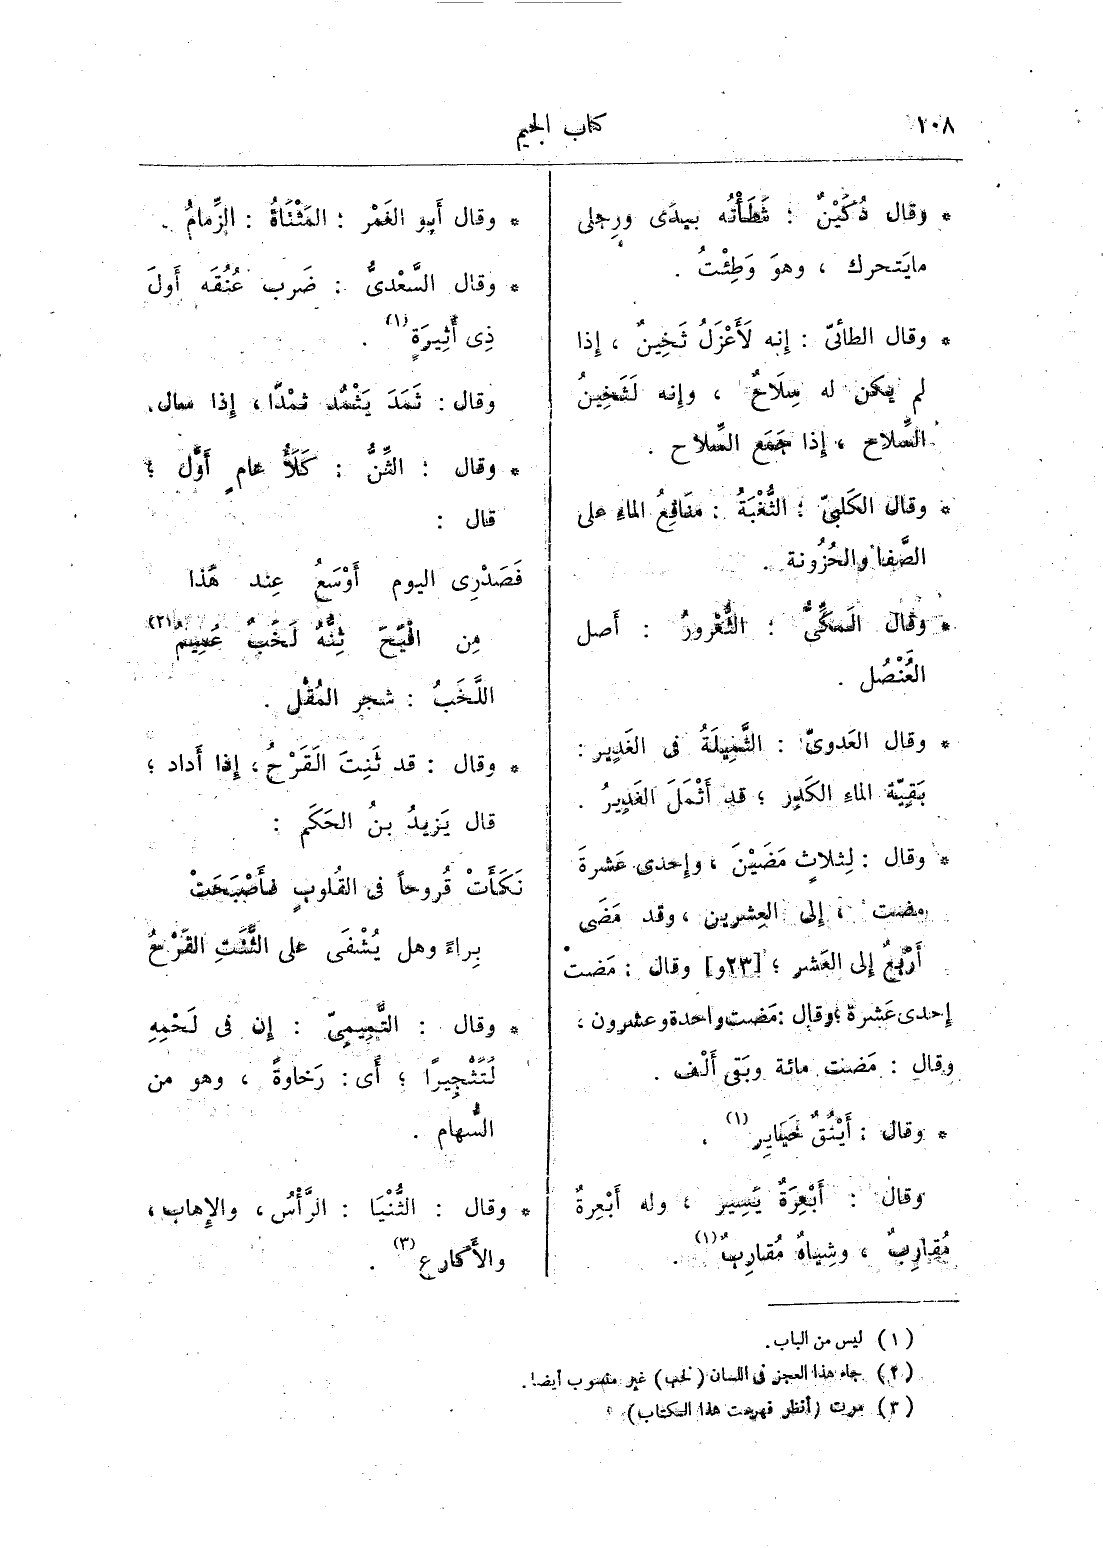 ١٠٨
كتاب الجيم
* وقال دُكَيْنٌ : ثَطَأْتُه بيدَى ورِجلى
مايَتحرك ، وهوَ وَطِئْتُ .
* وقال الطائىّ : إنه لَأَعْزَلُ ثَخِينٌ ، إذا
لم يكن له سِلَاحٌ ، وإنه لَثَخِينُ
السِّلاح ، إذا جَمَع السِّلاح .
* وقال الكَلبىّ : الثُّغْبَةُ : مَنَاقِعُ الماءِ على
الصَّفا والحُزُونة .
* وقال المَكِّىُّ : الثُّغْرورُ : أَصل
العُنْصُل .
* وقال العَدوىّ : الثَّمِيلَةُ فى الغَدِير :
بَقِيّة الماءِ الكَدِر ؛ قد أَثْمَلَ الغَدِيرُ .
* وقال : لِثلاثٍ مَضَيْنَ ، وإحدى عَشرةَ
مضت ، إلى العِشرين ، وقد مَضَى
أَرْبَعٌ إلى العَشر ؛ [٢٣و] وقال : مَضتْ
إحدى عَشرة ؛ وقال : مَضت واحدة وعشرون ،
وقال : مَضت مائة وبَقى أَلْف .
* وقال : أَيْنُقٌ خَيَايِر (١) .
وقال : أَبْعِرَةٌ يَسِير ، وله أَبْعِرةٌ
مُقارِبٌ ، وشِياهٌ مُقارِبٌ (١) .
* وقال أَبو الغَمْر : المَثْنَاةُ : الزِّمامُ .
* وقال السَّعْدىُّ : ضَرب عُنُقَه أَولَ
ذِى أَثِيرَةٍ (١) .
وقال : ثَمَدَ يَثْمُد ثمْدًا ، إذا سال .
* وقال : الثِّنُّ : كَلَأُ عامٍ أَوَّل ؛
قال :
فَصَدْرِى اليوم أَوْسَعُ عِند هَٰذا
مِن افْيَحَ ثِنُّهُ لَخَبٌ عَمِيمُ (٢)
اللَّخَبُ : شجر المُقْل .
* وقال : قد ثَنِتَ القَرْحُ ، إذا أداد ؛
قال يَزيدُ بنُ الحَكَم :
نَكَأَتْ قُروحاً فى القُلوبِ فأَصْبَحَتْ
بِراءً وهل يُشْفَى على الثَّنَتِ القَرْحُ
* وقال : التَّمِيمِىّ : إن فى لَحْمِهِ
لَتَثْجِيرًا ؛ أَى : رَخاوةً ، وهو من
السُّهام .
* وقال : الثُّنْيَا : الرَّأْسُ ، والإِهاب ،
والأَكارع (٣) .
(١) ليس من الباب .
(٢) جاء هذا العجز فى اللسان (لخب) غير منسوب أيضا .
(٣) مرت (أنظر فهرست هذا الكتاب)